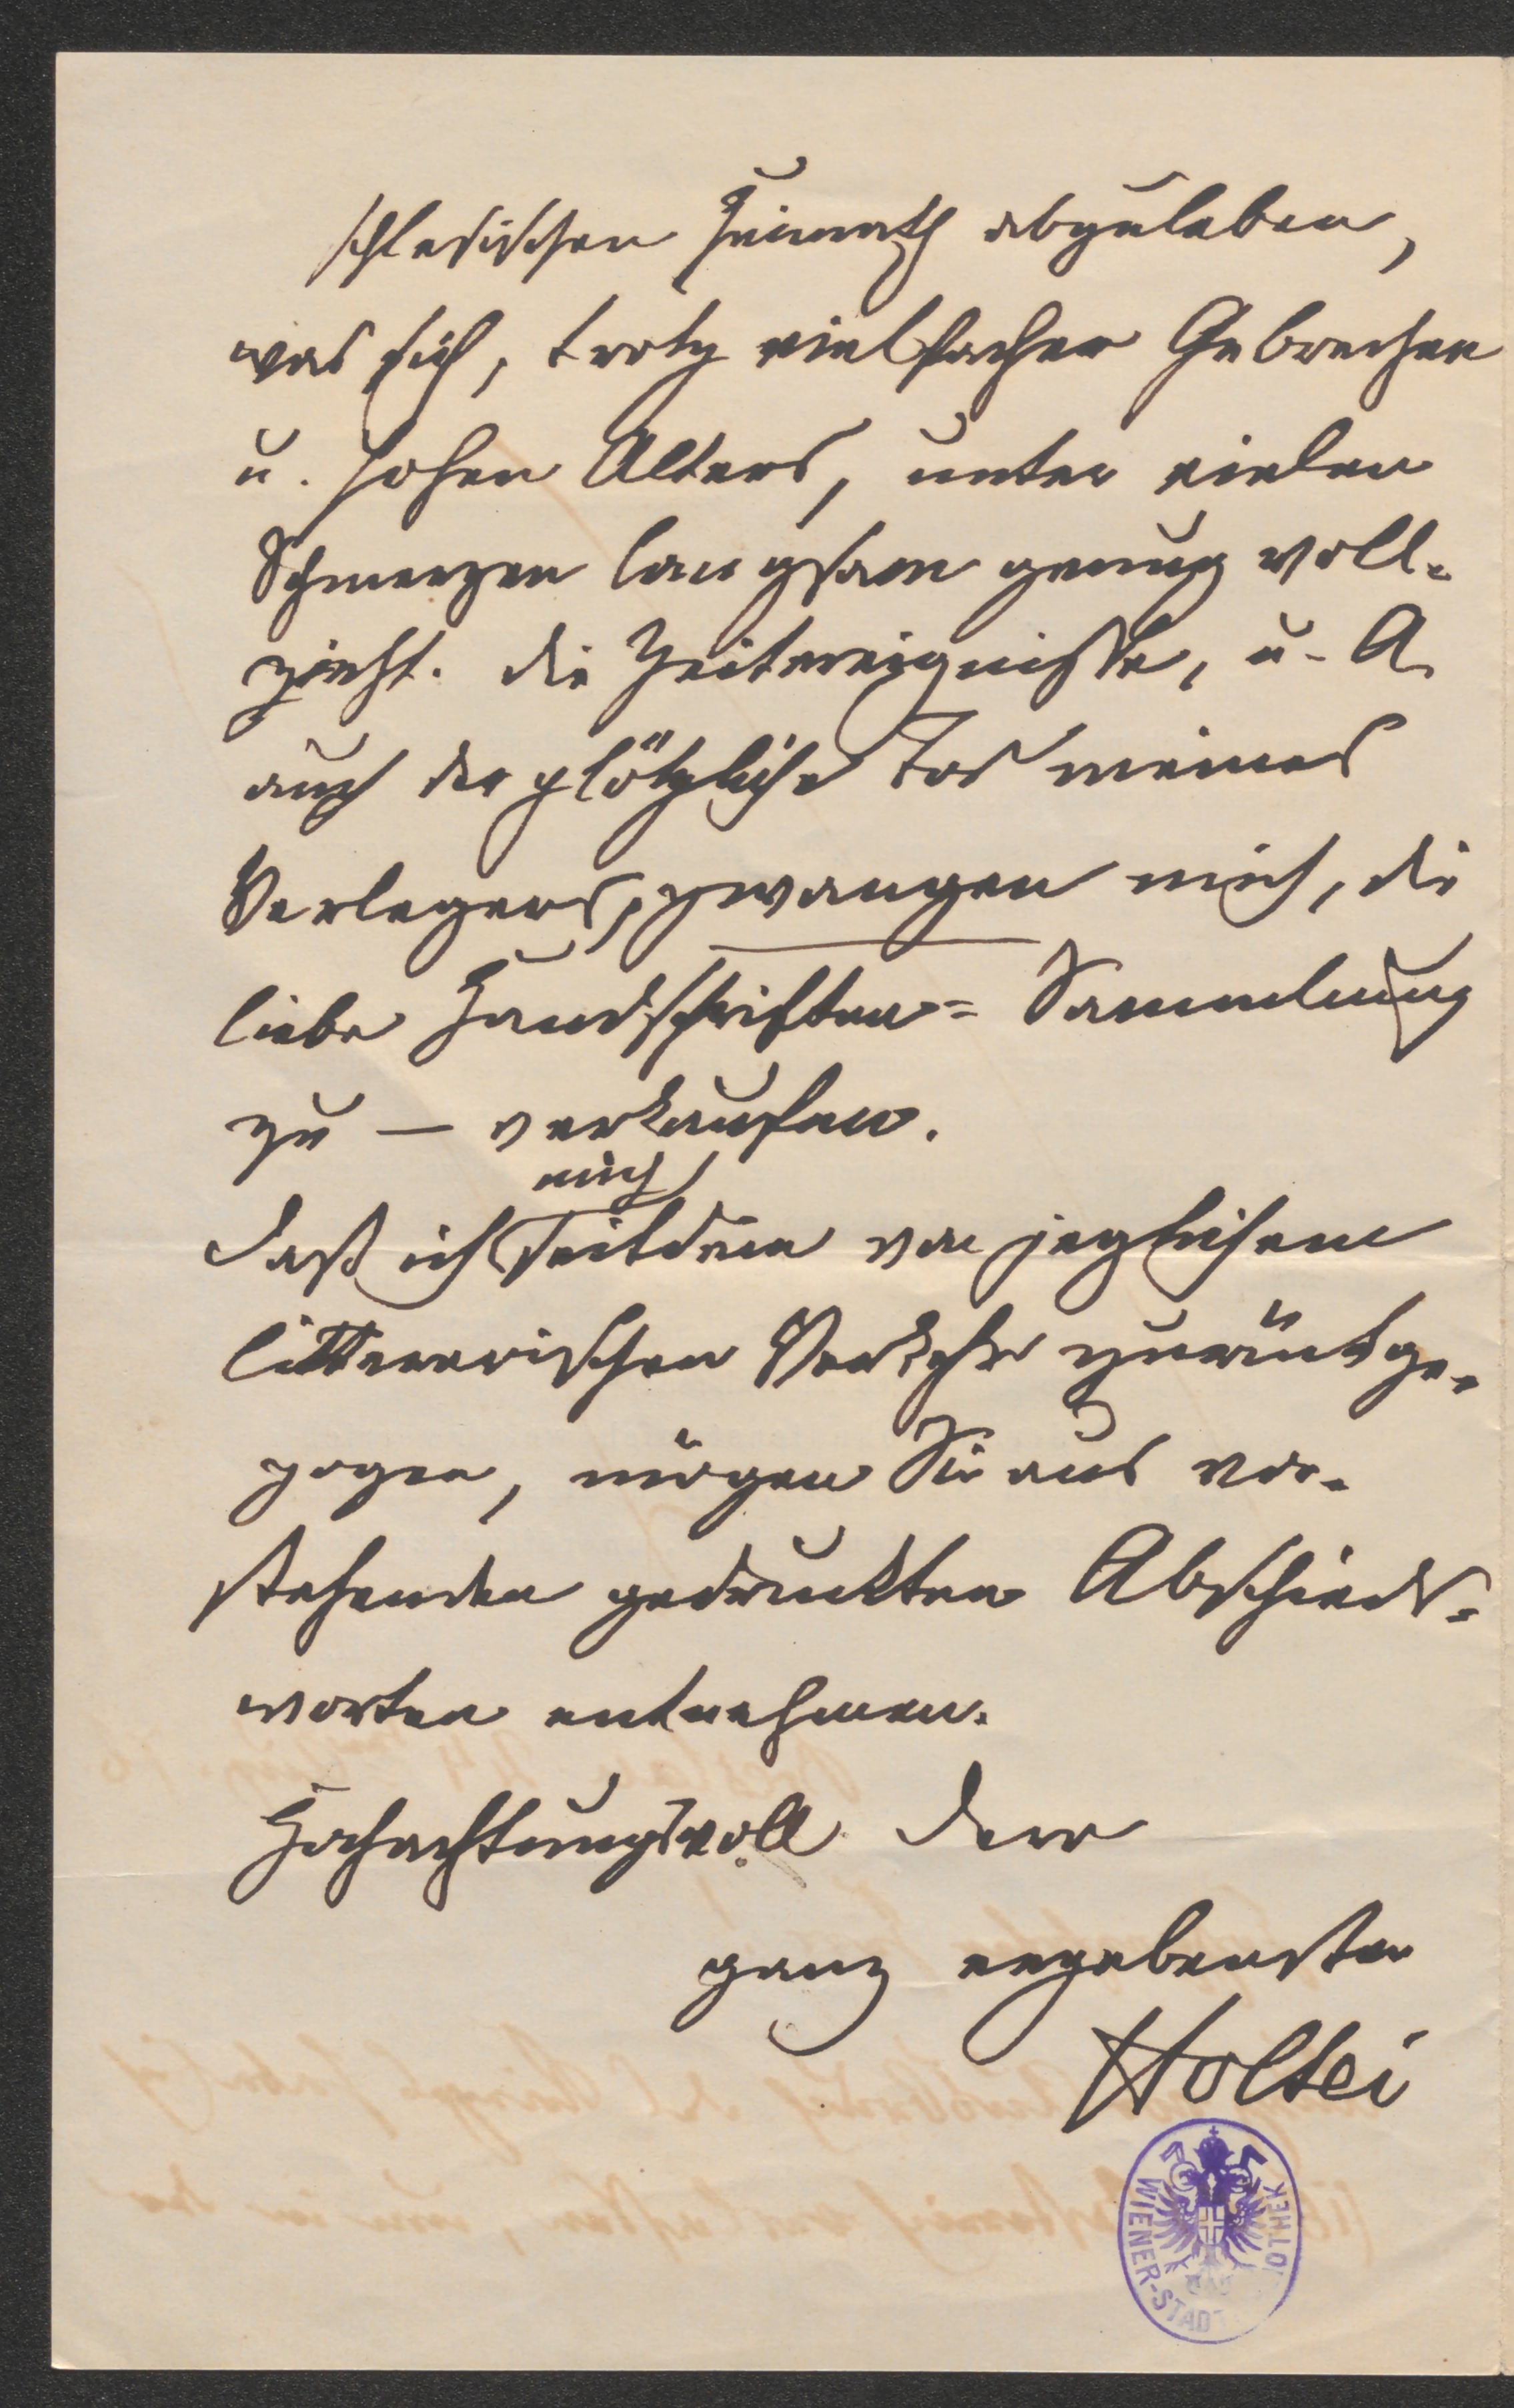 schlesischen Heimath abzuleben,
was sich, trotz vielfacher Gebrechen
u. hohen Alters, unter vielen
Schmerzen langsam genug voll-
zieht. Die Zeitereignisse, u. A.
auch der plötzliche Tod meines
Verlegers, zwangen mich, die
liebe Handschriften= Sammlung
zu — verkaufen.
mich
Daß ich seitdem von jeglichem
litterarischen Verkehr zurückge-
zogen, mögen Sie aus vor-
stehenden gedruckten Abschieds-
worten entnehmen.
Hochachtungsvoll Dero
ganz ergebenster
Holtei
WIENER-STADT BIBLIOTHEK